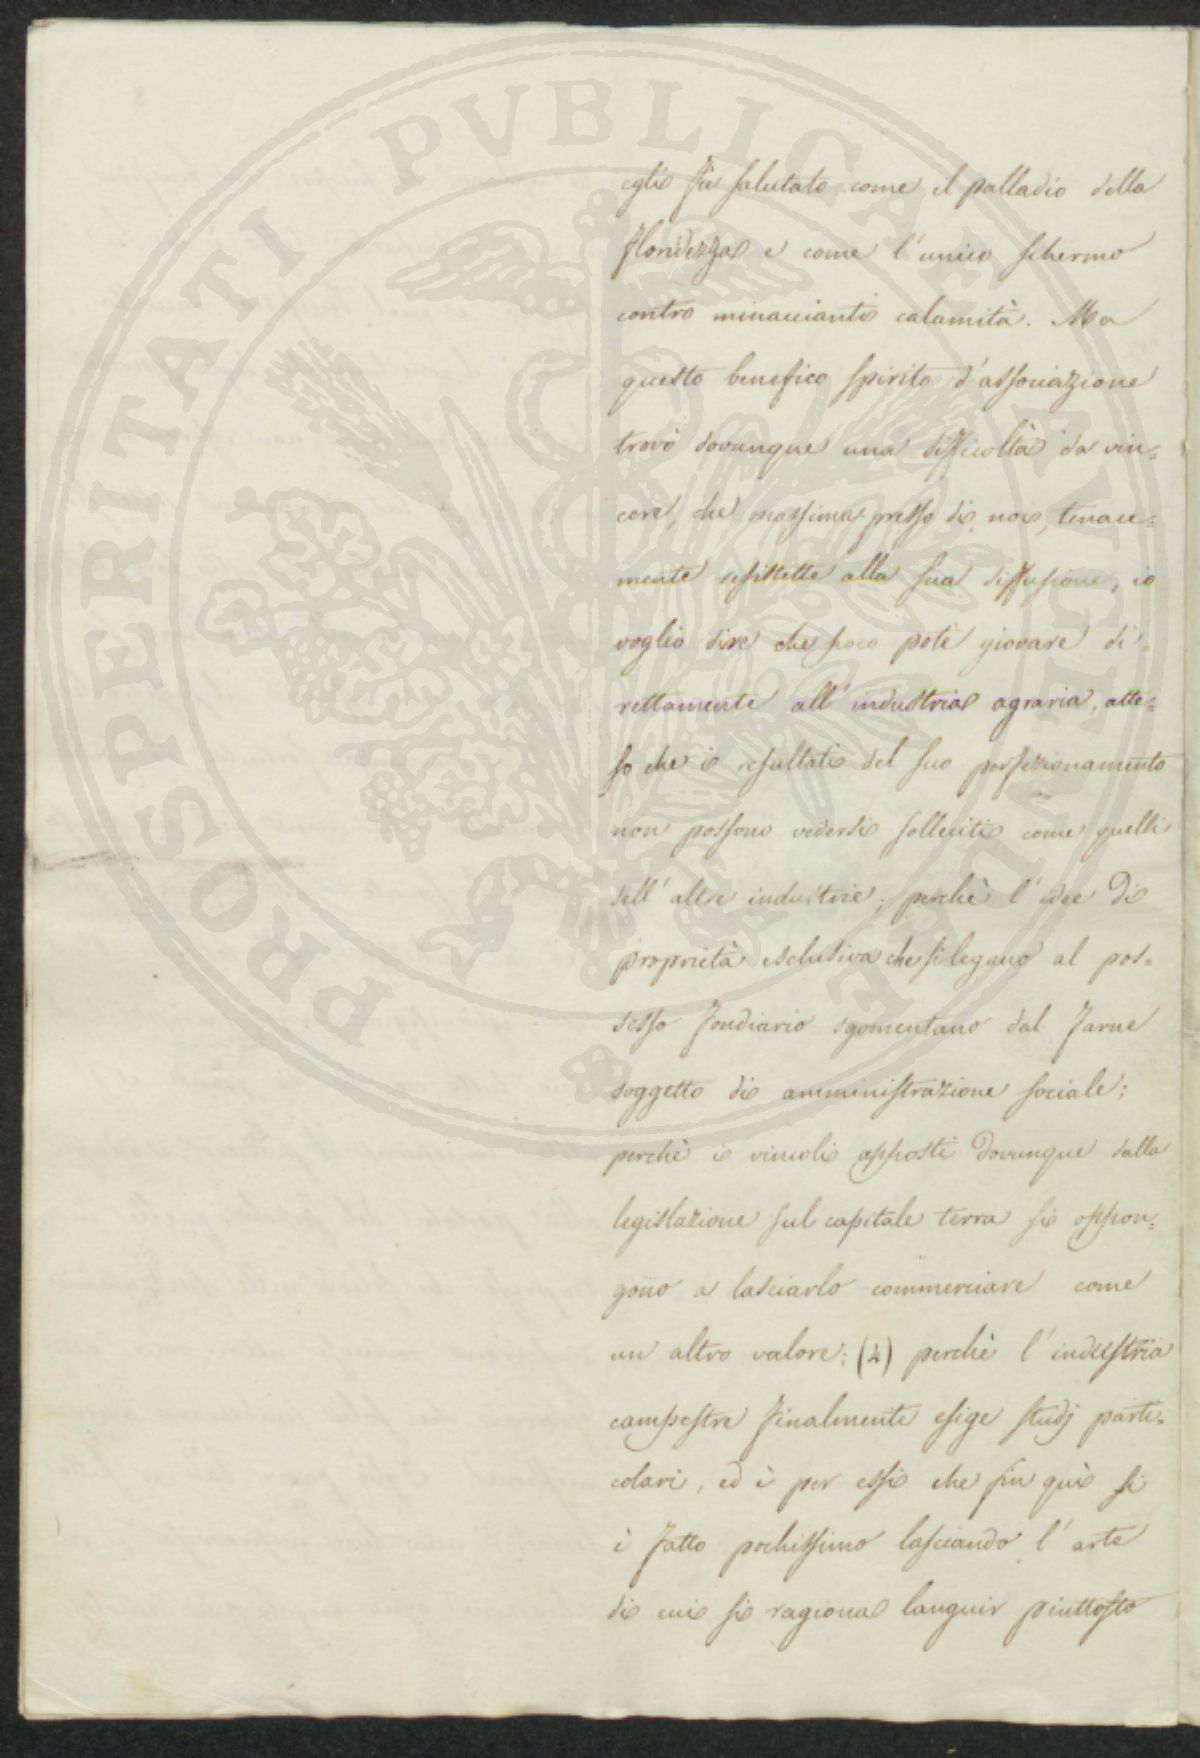 PROSPERITATI PVBLICAE AVGENDAE
egli fù salutato come il palladio della
floridezza e come l'unico schermo
contro minaccianti calamità. Ma
questo benefico spirito d'associazione
trovò dovunque una difficoltà da vin=
cere, che massima presso di noi, tenace=
mente resistette alla sua diffusione, io
voglio dire che poco potè giovare di=
rettamente all'industria agraria, atte=
so che i resultati del suo perfezionamento
non possono vedersi solleciti come quelli
dell'altre industrie; perchè l'idee di
proprietà esclusiva che si legano al pos=
sesso fondiario sgomentano dal farne
soggetto di amministrazione sociale;
perchè i vincoli apposti dovunque dalla
legislazione sul capitale terra si oppon=
gono a lasciarlo commerciare come
un altro valore; (4) perchè l'industria
campestre finalmente esige studj parti=
colari, ed è per essi che fin quì si
è fatto pochissimo lasciando l'arte
di cui si ragiona languir piuttosto